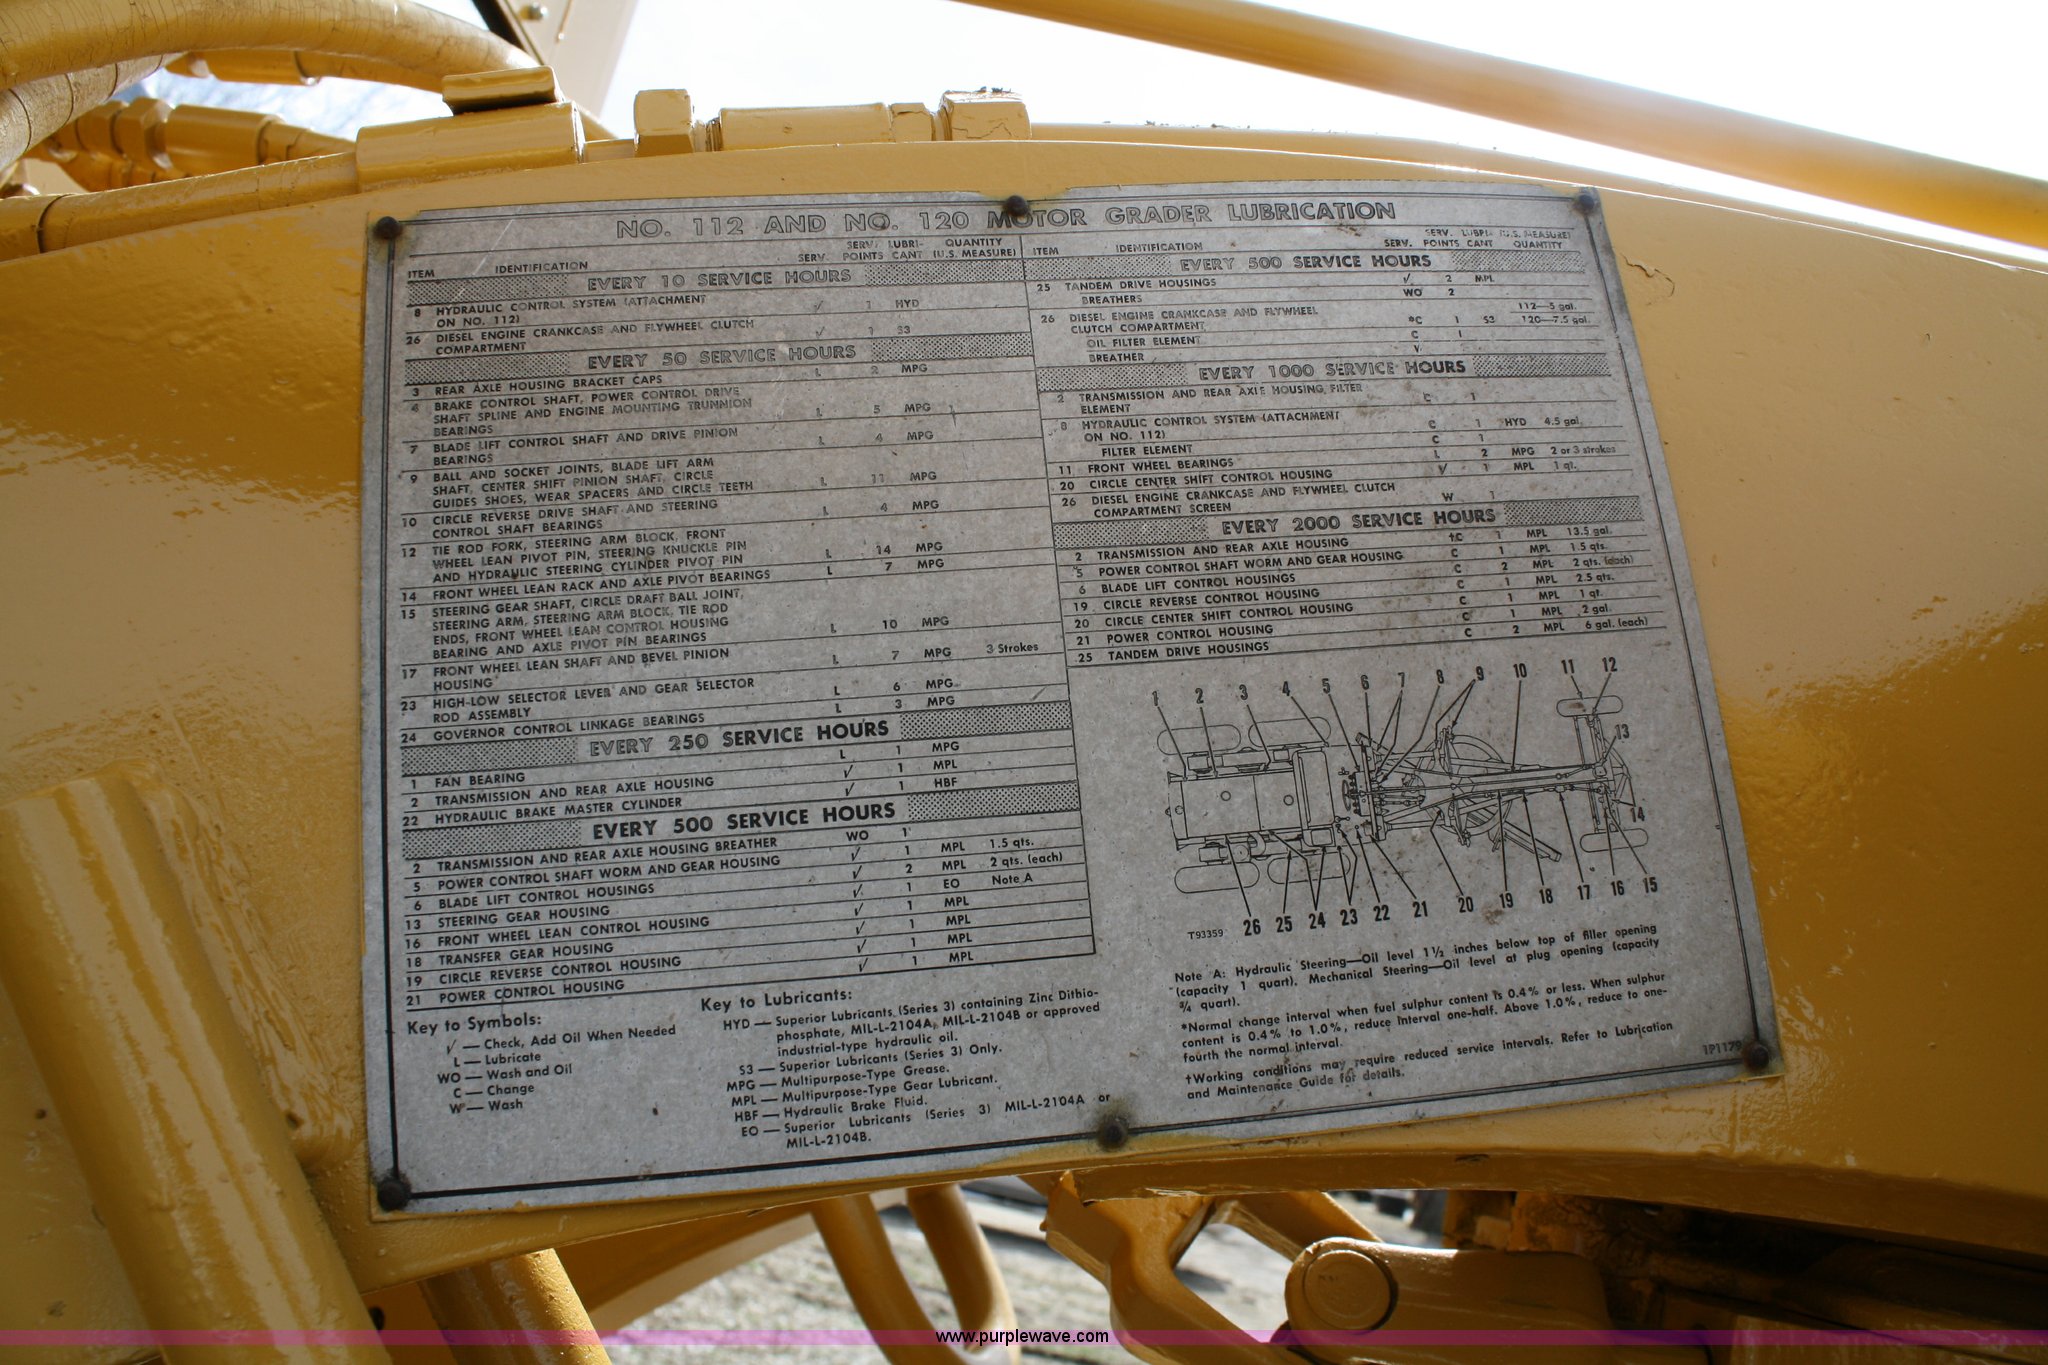 NO. 112 AND NO. 120 MOTOR GRADER LUBRICATION
ITEM IDENTIFICATION SERV. SERV. POINTS LUBRI- CANT QUANTITY (U.S. MEASURE)
EVERY 10 SERVICE HOURS
8 HYDRAULIC CONTROL SYSTEM (ATTACHMENT
ON NO. 112) √ 1 HYD
26 DIESEL ENGINE CRANKCASE AND FLYWHEEL CLUTCH
COMPARTMENT √ 1 S3
EVERY 50 SERVICE HOURS
3 REAR AXLE HOUSING BRACKET CAPS L 2 MPG
4 BRAKE CONTROL SHAFT, POWER CONTROL DRIVE
SHAFT SPLINE AND ENGINE MOUNTING TRUNNION
BEARINGS L 5 MPG
7 BLADE LIFT CONTROL SHAFT AND DRIVE PINION
BEARINGS L 4 MPG
9 BALL AND SOCKET JOINTS, BLADE LIFT ARM
SHAFT, CENTER SHIFT PINION SHAFT, CIRCLE
GUIDES SHOES, WEAR SPACERS AND CIRCLE TEETH L 11 MPG
10 CIRCLE REVERSE DRIVE SHAFT AND STEERING
CONTROL SHAFT BEARINGS L 4 MPG
12 TIE ROD FORK, STEERING ARM BLOCK, FRONT
WHEEL LEAN PIVOT PIN, STEERING KNUCKLE PIN
AND HYDRAULIC STEERING CYLINDER PIVOT PIN L 14 MPG
14 FRONT WHEEL LEAN RACK AND AXLE PIVOT BEARINGS L 7 MPG
15 STEERING GEAR SHAFT, CIRCLE DRAFT BALL JOINT,
STEERING ARM, STEERING ARM BLOCK, TIE ROD
ENDS, FRONT WHEEL LEAN CONTROL HOUSING
BEARING AND AXLE PIVOT PIN BEARINGS L 10 MPG
17 FRONT WHEEL LEAN SHAFT AND BEVEL PINION
HOUSING L 7 MPG 3 Strokes
23 HIGH-LOW SELECTOR LEVER AND GEAR SELECTOR
ROD ASSEMBLY L 6 MPG
24 GOVERNOR CONTROL LINKAGE BEARINGS L 3 MPG
EVERY 250 SERVICE HOURS
1 FAN BEARING L 1 MPG
2 TRANSMISSION AND REAR AXLE HOUSING √ 1 MPL
22 HYDRAULIC BRAKE MASTER CYLINDER √ 1 HBF
EVERY 500 SERVICE HOURS
2 TRANSMISSION AND REAR AXLE HOUSING BREATHER WO 1
5 POWER CONTROL SHAFT WORM AND GEAR HOUSING √ 1 MPL 1.5 qts.
6 BLADE LIFT CONTROL HOUSINGS √ 2 MPL 2 qts. (each)
13 STEERING GEAR HOUSING √ 1 EO Note A
16 FRONT WHEEL LEAN CONTROL HOUSING √ 1 MPL
18 TRANSFER GEAR HOUSING √ 1 MPL
19 CIRCLE REVERSE CONTROL HOUSING √ 1 MPL
21 POWER CONTROL HOUSING √ 1 MPL
Key to Symbols:
√ — Check, Add Oil When Needed
L — Lubricate
WO — Wash and Oil
C — Change
W — Wash
Key to Lubricants:
HYD — Superior Lubricants (Series 3) containing Zinc Dithio-
phosphate, MIL-L-2104A, MIL-L-2104B or approved
industrial-type hydraulic oil.
S3 — Superior Lubricants (Series 3) Only.
MPG — Multipurpose-Type Grease.
MPL — Multipurpose-Type Gear Lubricant.
HBF — Hydraulic Brake Fluid.
EO — Superior Lubricants (Series 3) MIL-L-2104A or
MIL-L-2104B.
ITEM IDENTIFICATION SERV. SERV. POINTS LUBRI- CANT (U.S. MEASURE) QUANTITY
EVERY 500 SERVICE HOURS
25 TANDEM DRIVE HOUSINGS √ 2 MPL
BREATHERS WO 2
26 DIESEL ENGINE CRANKCASE AND FLYWHEEL 112—5 gal.
CLUTCH COMPARTMENT *C 1 S3 120—7.5 gal.
OIL FILTER ELEMENT C 1
BREATHER
EVERY 1000 SERVICE HOURS
2 TRANSMISSION AND REAR AXLE HOUSING FILTER
ELEMENT C 1
8 HYDRAULIC CONTROL SYSTEM (ATTACHMENT
ON NO. 112) C 1 HYD 4.5 gal.
FILTER ELEMENT C 1
11 FRONT WHEEL BEARINGS L 2 MPG 2 or 3 strokes
20 CIRCLE CENTER SHIFT CONTROL HOUSING √ 1 MPL 1 qt.
26 DIESEL ENGINE CRANKCASE AND FLYWHEEL CLUTCH
COMPARTMENT SCREEN W 1
EVERY 2000 SERVICE HOURS
2 TRANSMISSION AND REAR AXLE HOUSING †C 1 MPL 13.5 gal.
5 POWER CONTROL SHAFT WORM AND GEAR HOUSING C 1 MPL 1.5 qts.
6 BLADE LIFT CONTROL HOUSINGS C 2 MPL 2 qts. (each)
19 CIRCLE REVERSE CONTROL HOUSING C 1 MPL 2.5 qts.
20 CIRCLE CENTER SHIFT CONTROL HOUSING C 1 MPL 1 qt.
21 POWER CONTROL HOUSING C 1 MPL 2 gal.
25 TANDEM DRIVE HOUSINGS C 2 MPL 6 gal. (each)
1 2 3 4 5 6 7 8 9 10 11 12
13
14
T93359 26 25 24 23 22 21 20 19 18 17 16 15
Note A: Hydraulic Steering—Oil level 1½ inches below top of filler opening
(capacity 1 quart). Mechanical Steering—Oil level at plug opening (capacity
¾ quart).
*Normal change interval when fuel sulphur content is 0.4% or less. When sulphur
content is 0.4% to 1.0%, reduce interval one-half. Above 1.0%, reduce to one-
fourth the normal interval.
†Working conditions may require reduced service intervals. Refer to Lubrication
and Maintenance Guide for details.
1P1179
www.purplewave.com